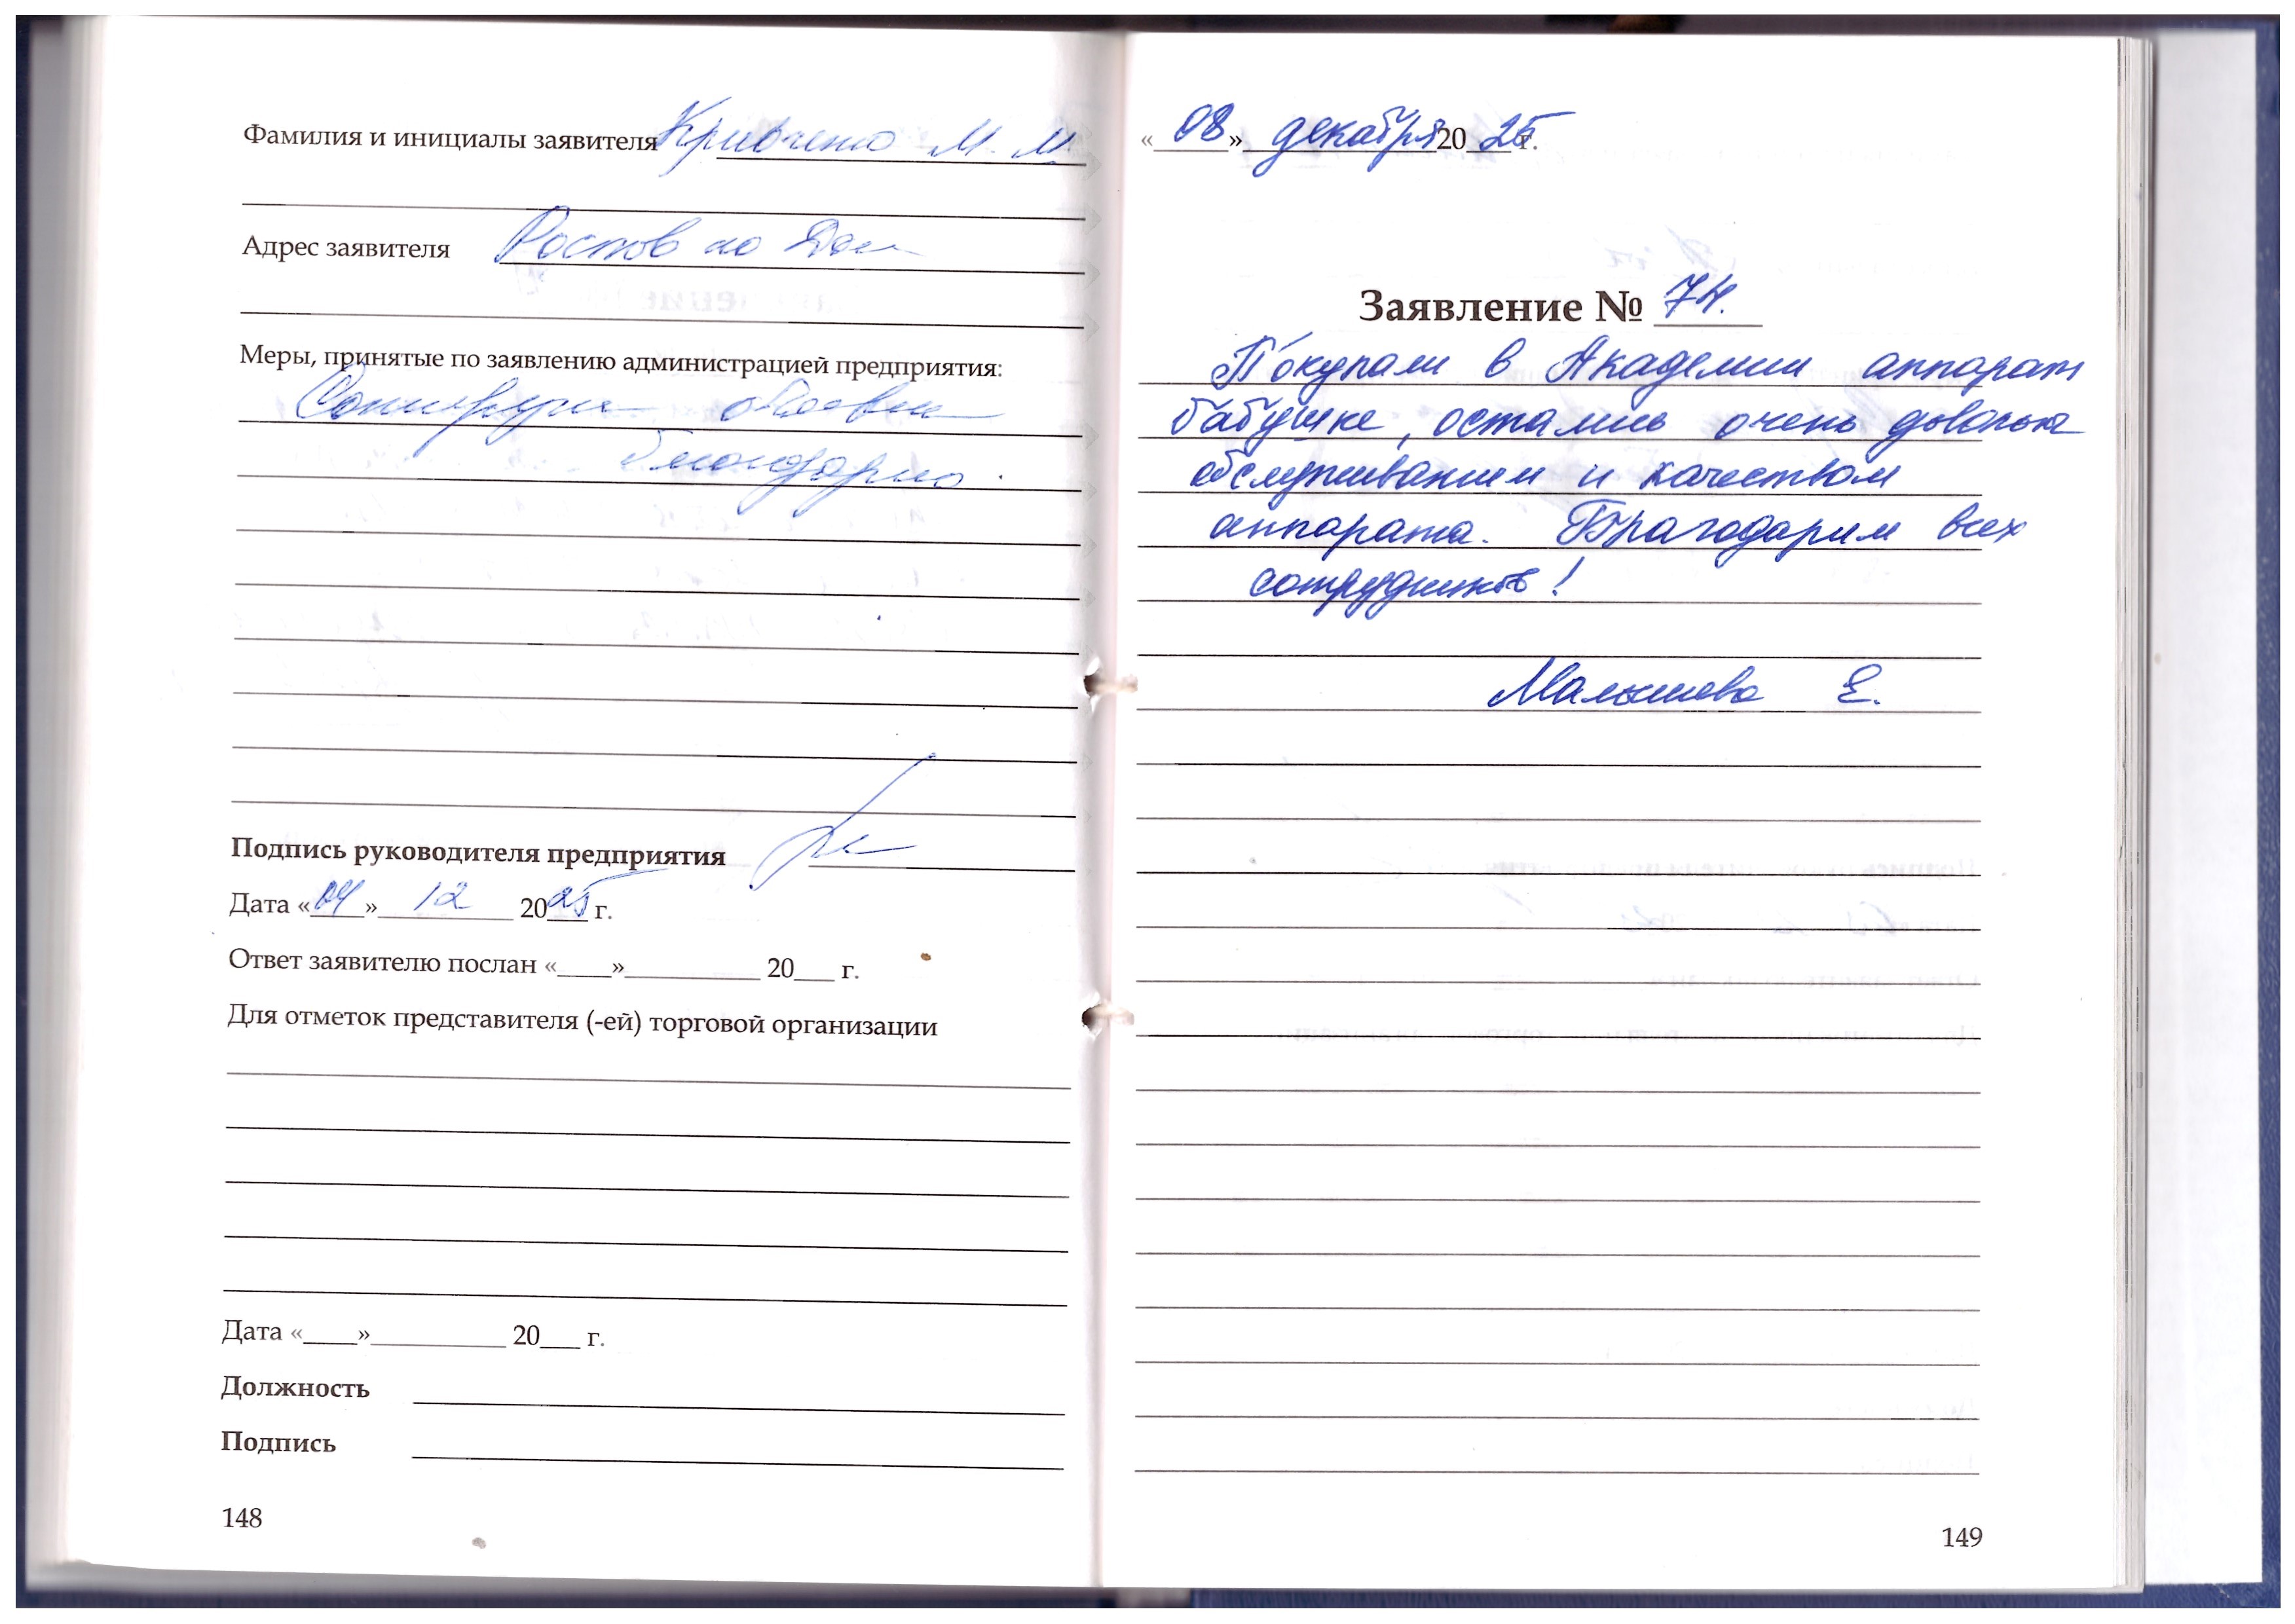 Фамилия и инициалы заявителя Кривченко М. М.
Адрес заявителя Ростов на Дон
Меры, принятые по заявлению администрацией предприятия:
благодарно.
Подпись руководителя предприятия
Дата «04» 12 2025 г.
Ответ заявителю послан «____»__________ 20___ г.
Для отметок представителя (-ей) торговой организации
Дата «____»__________ 20___ г.
Должность
Подпись
148
«08» декабря 2025 г.
Заявление № 74.
Покупали в Академии аппарат
бабушке, остались очень довольны
обслуживанием и качеством
аппарата. Благодарим всех
сотрудников!
Малышева Е.
149